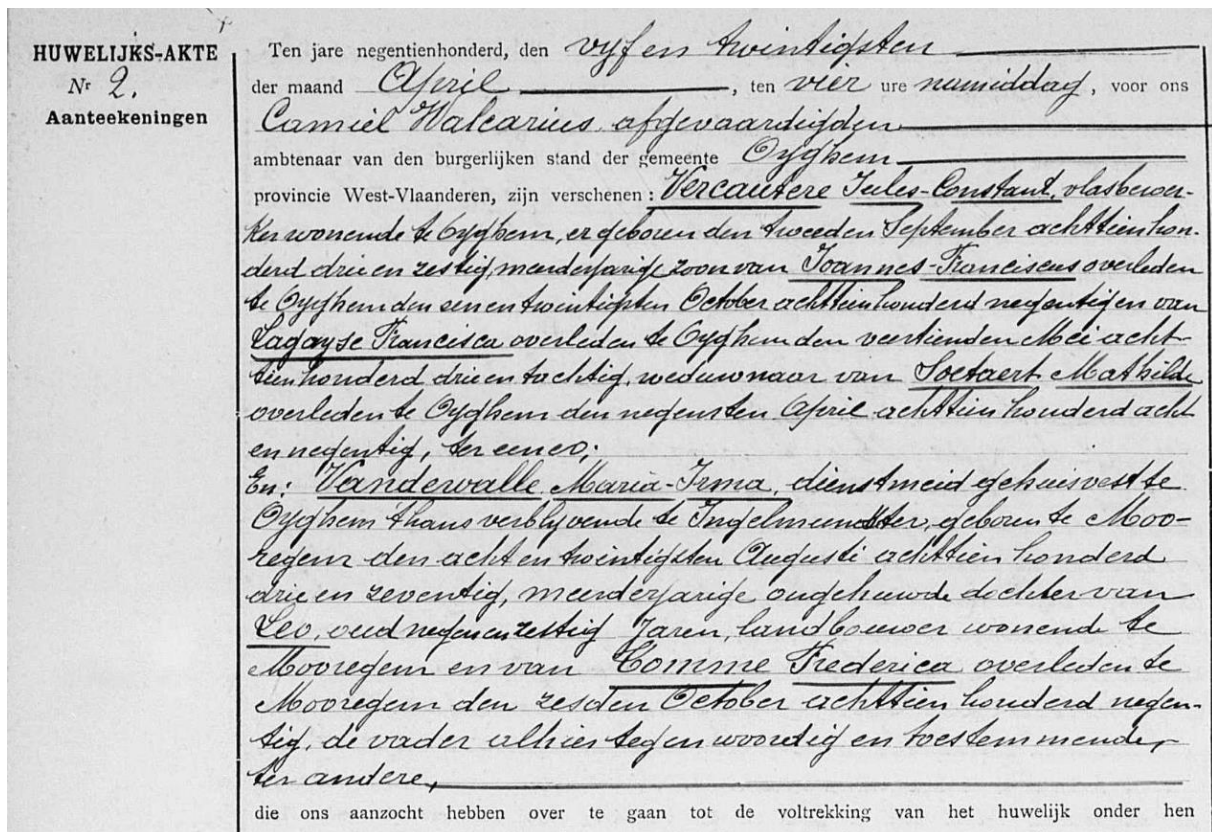 HUWELIJKS-AKTE
Nr 2.
Aanteekeningen
Ten jare negentienhonderd, den vyf en twintigsten
der maand April, ten vier ure namiddag, voor ons
Camiel Walcarius, afgevaardigden
ambtenaar van den burgerlijken stand der gemeente Oyghem
provincie West-Vlaanderen, zijn verschenen : Vercautere Jules-Constant, vlasbewer-
ker wonende te Oyghem, er geboren den tweeden September achttien hon-
derd drie en zestig, meerderjarige zoon van Joannes-Franciscus overleden
te Oyghem den een en twintigsten October achttien honderd negentig en van
Lagayse Francisca overleden te Oyghem den veertienden Mei acht-
tien honderd drie en tachtig, weduwnaar van Soetaert Mathilde
overleden te Oyghem den negensten April achttien honderd acht
en negentig, ter eener;
En: Vandewalle Maria-Irma, dienstmeid gehuisvest te
Oyghem thans verblyvende te Ingelmunster, geboren te Moo-
regem den acht en twintigsten Augusti achttien honderd
drie en zeventig, meerderjarige ongehuwde dochter van
Leo, oud negen en zestig Jaren, landbouwer wonende te
Mooregem en van Comme Frederica overleden te
Mooregem den zesden October achttien honderd negen-
tig, de vader alhier tegenwoordig en toestemmende,
ter andere,
die ons aanzocht hebben over te gaan tot de voltrekking van het huwelijk onder hen